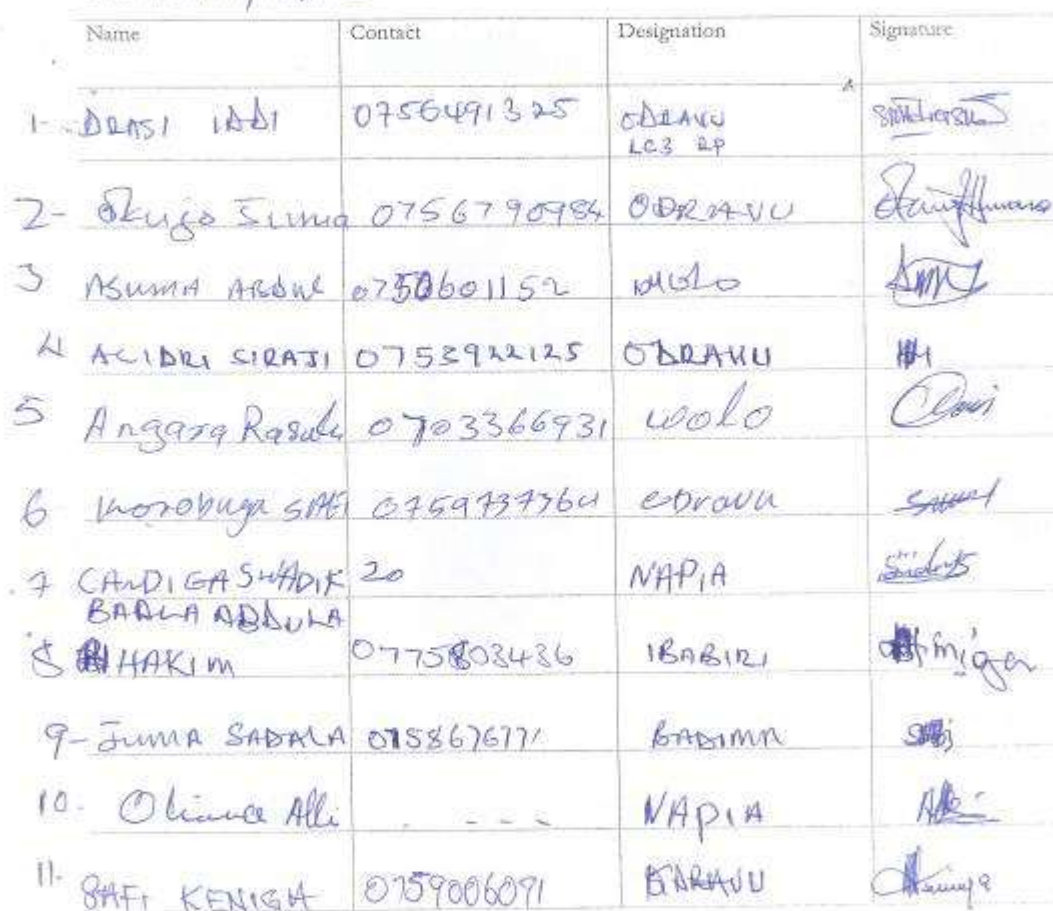 Name Contact Designation Signature
1- DRASI IDDI 0756491325 ODRAVU
LC3 RP
2- Juma 0756790984 ODRAVU
3 ASUMA ABDUL 0750601152
4 ACIDRI SIRAJI 0753922125 ODRAVU
5 Angara Rasulu 0703366931 wolo
6 Korobuga SAFI 0759737364 odravu
7 CANDIGA SWADIK 20 NAPIA
BARLA ABDULA
8 HAKIM 0775803436 IBABIRI
9- JUMA SADALA BADIMA
10- Alli - - - - NAPIA
11- SAFI KENIGA 0759006091